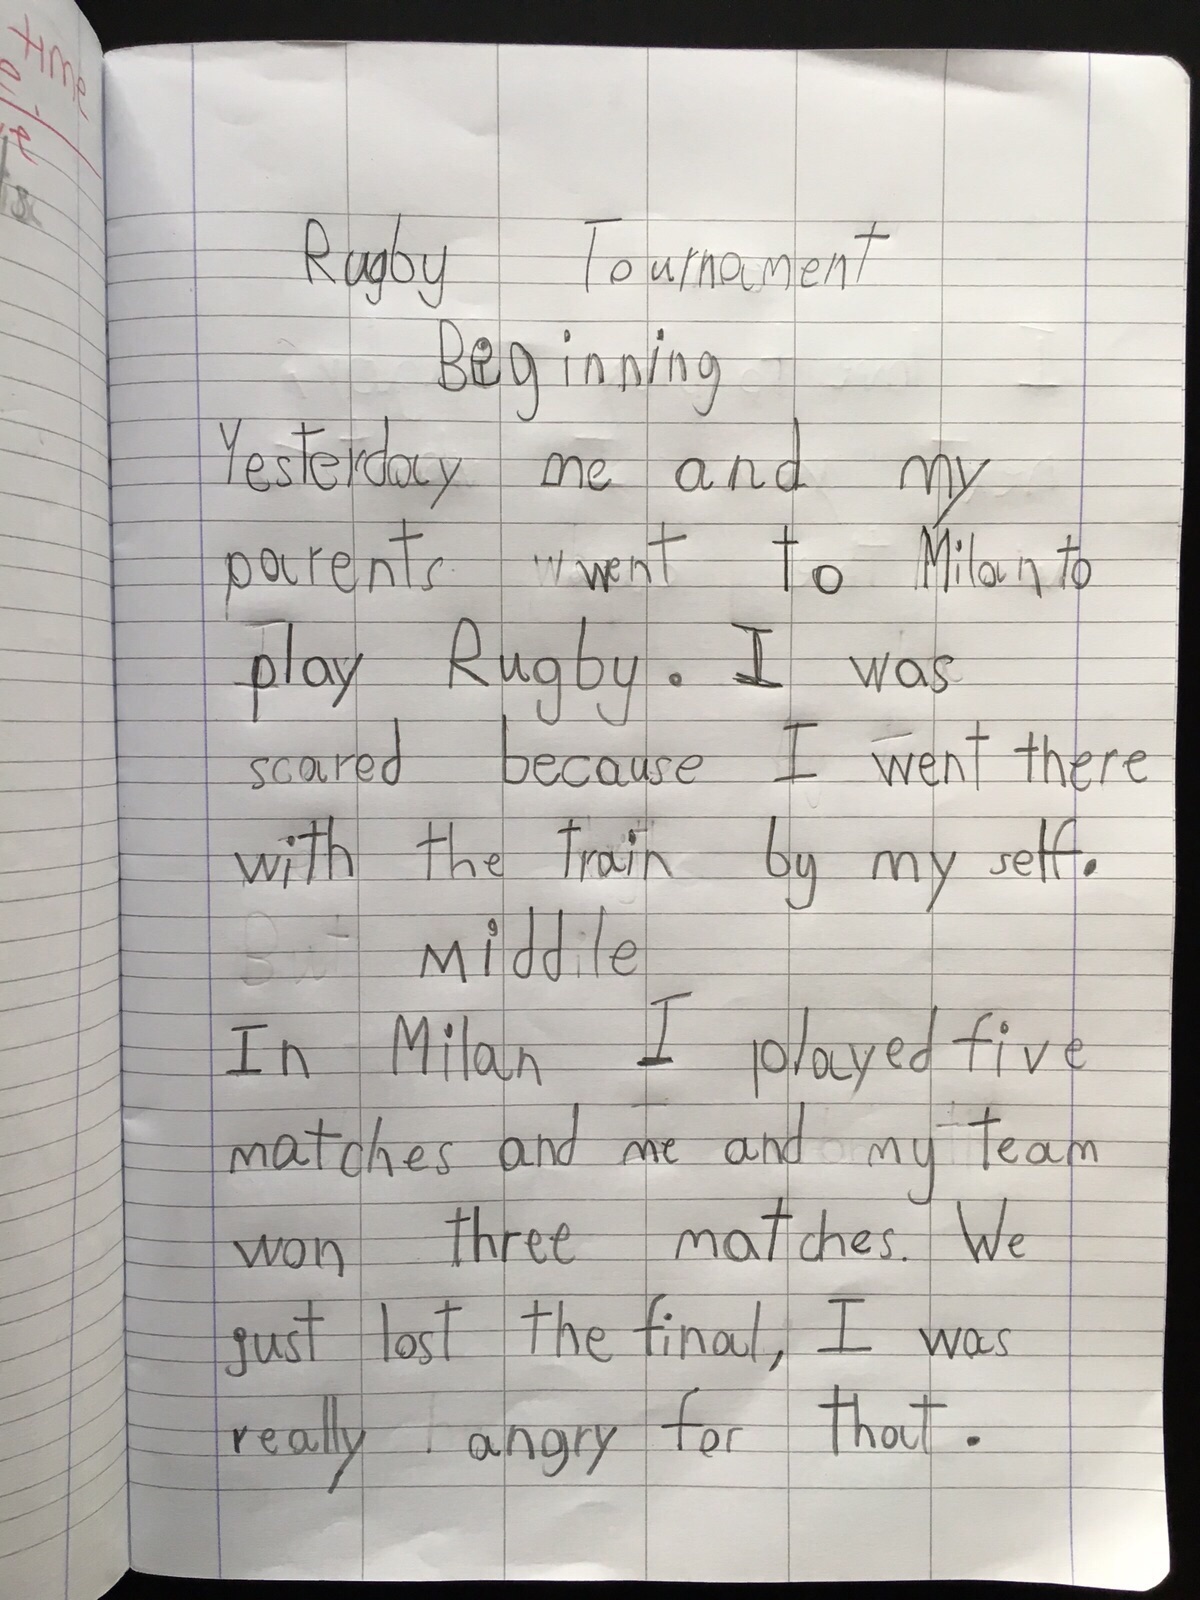 time
Rugby Tournament
Beginning
Yesterday me and my
parents went to Milan to
play Rugby. I was
scared because I went there
with the train by my self.
Middile
In Milan I played five
matches and me and my team
won three matches. We
gust lost the final, I was
really angry for that.